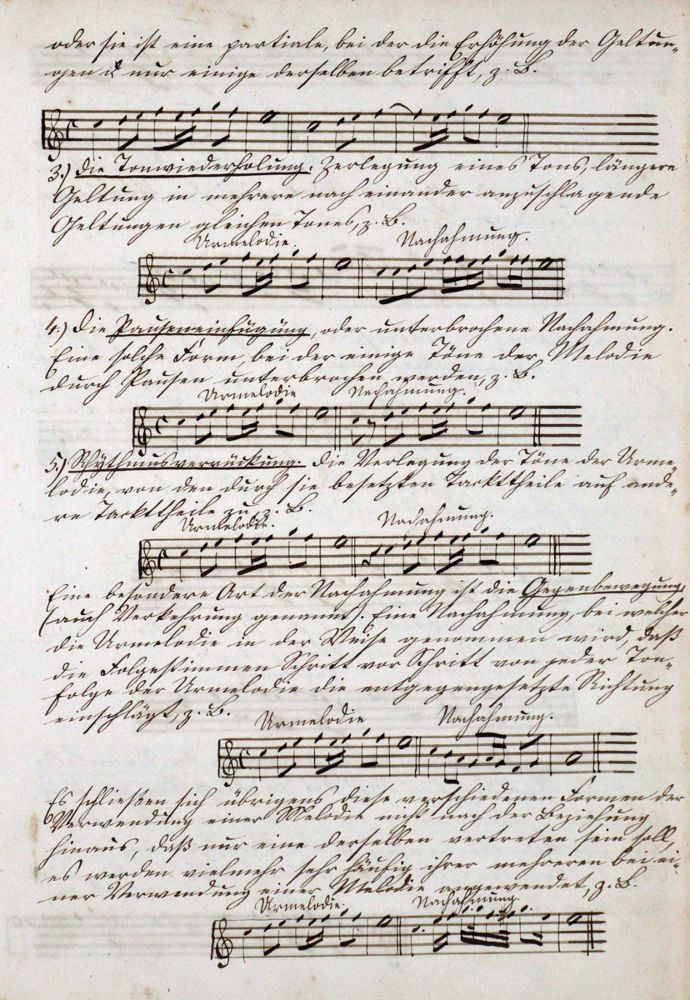 oder sie ist eine partiale, bei der die Erhöhung der Geltun-
gen nur einige derselben betrifft, z. B.
3.) Die Tonwiederholung. Zerlegung eines Tons, längere
Geltung in mehrere nach einander anzuschlagende
Geltungen gleichen Tones, z. B.
Urmelodie. Nachahmung.
4.) Die Pauseneinfügung, oder unterbrochene Nachahmung.
Eine solche Form, bei der einige Töne der Melodie
durch Pausen unterbrochen werden, z. B.
Urmelodie Nachahmung.
5.) Rhythmusverrückung. Die Verlegung der Töne der Urme-
lodie, von den durch sie besetzten Tackttheile auf ande-
re Tackttheile zu, z. B.
Urmelodie. Nachahmung.
Eine besondere Art der Nachahmung ist die Gegenbewegung,
(auch Verkehrung genannt). Eine Nachahmung, bei welcher
die Urmelodie in der Weise genommen wird, daß
die Folgestimmen Schritt vor Schritt von jeder Ton-
folge der Urmelodie die entgegengesetzte Richtung
einschlägt, z. B.
Urmelodie Nachahmung.
Es schließen sich übrigens diese verschiedenen Formen der
Verwendung einer Melodie nicht nach der Beziehung
hinaus, daß nur eine derselben vertreten sein soll,
es werden vielmehr sehr häufig ihrer mehreren bei ei-
ner Verwendung einer Melodie angewendet, z. B.
Urmelodie. Nachahmung.